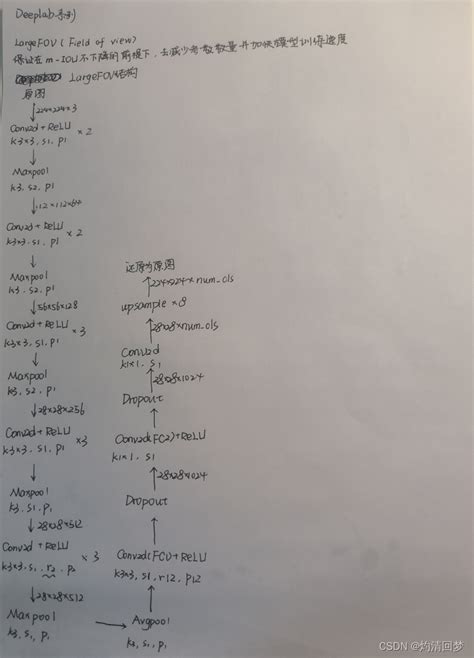 Deeplab系列
LargeFOV ( Field of view)
保证在 m-IOU不下降的前提下，去减少参数数量并加快模型训练速度
LargeFOV结构
原图
↓224×224×3
Conv2d+ReLU ×2
k3×3, s1, p1
↓
Maxpool
k3, s2, p1
↓112×112×64
Conv2d+ReLU ×2
k3×3, s1, p1
↓
Maxpool
k3, s2, p1
↓56×56×128
Conv2d+ReLU ×3
k3×3, s1, p1
↓
Maxpool
k3, s2, p1
↓28×28×256
Conv2d+ReLU ×3
k3×3, s1, p1
↓
Maxpool
k3, s1, p1
↓28×28×512
Conv2d+ReLU ×3
k3×3, s1, r2, p2
↓28×28×512
Maxpool
k3, s1, p1
→
还原为原图
↑224×224×num_cls
upsample ×8
↑28×28×num_cls
Conv2d
k1×1, s1
↑28×28×1024
Dropout
↑
Conv2d(FC2)+ReLU
k1×1, s1
↑28×28×1024
Dropout
↑
Conv2d(FC1)+ReLU
k3×3, s1, r12, p12
↑
Avgpool
k3, s1, p1
CSDN @灼清回梦